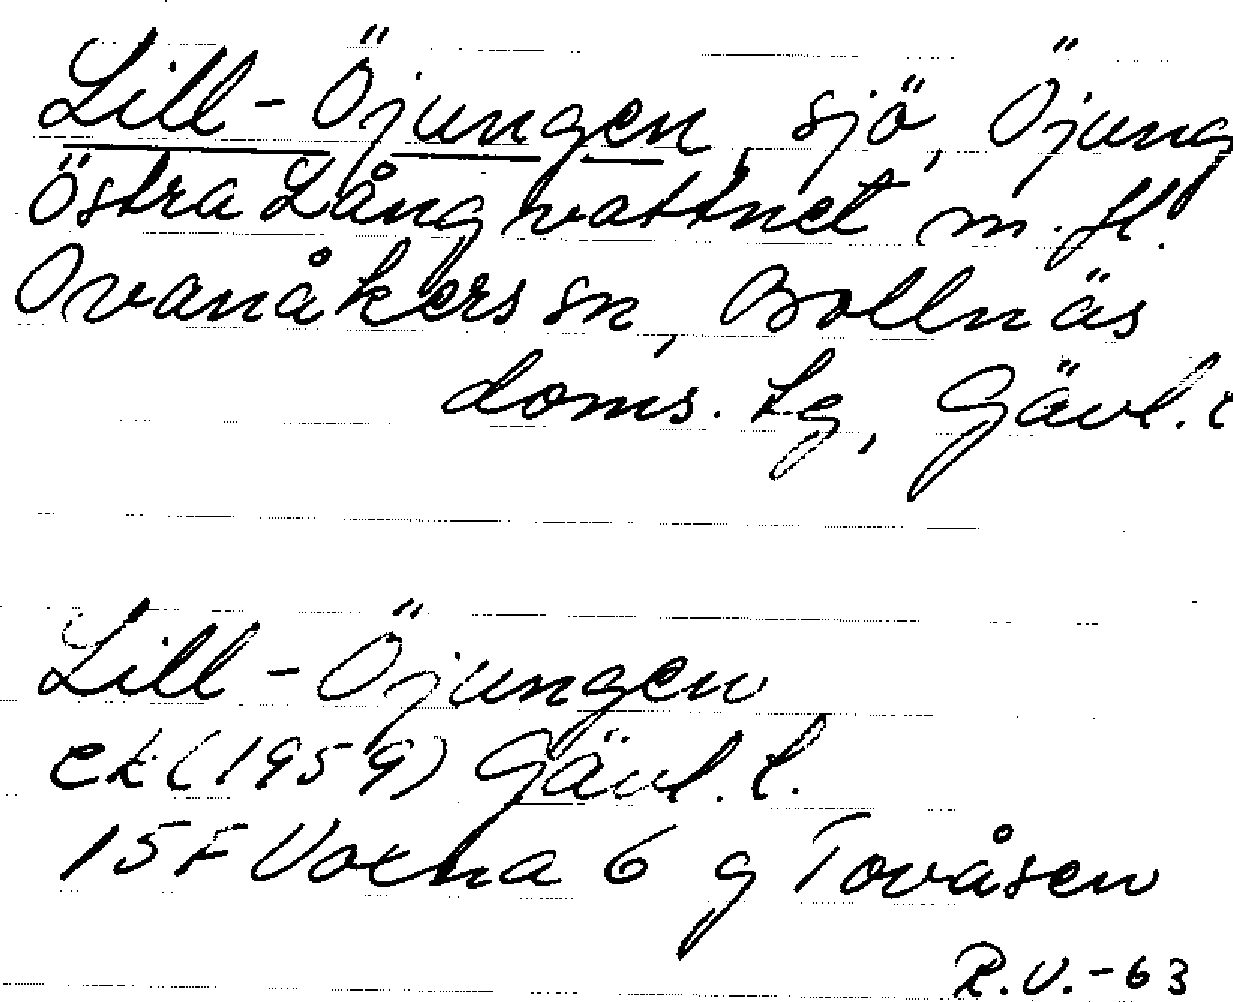 Lill-Öjungen, sjö, Öjung
östra Långvattnet m.fl.
Ovanåkers sn, Bollnäs
doms. tg, Gävl. l
Lill-Öjungen
ek (1959) Gävl. l.
15F Voxna 6 g Tovåsen
R.V.-63